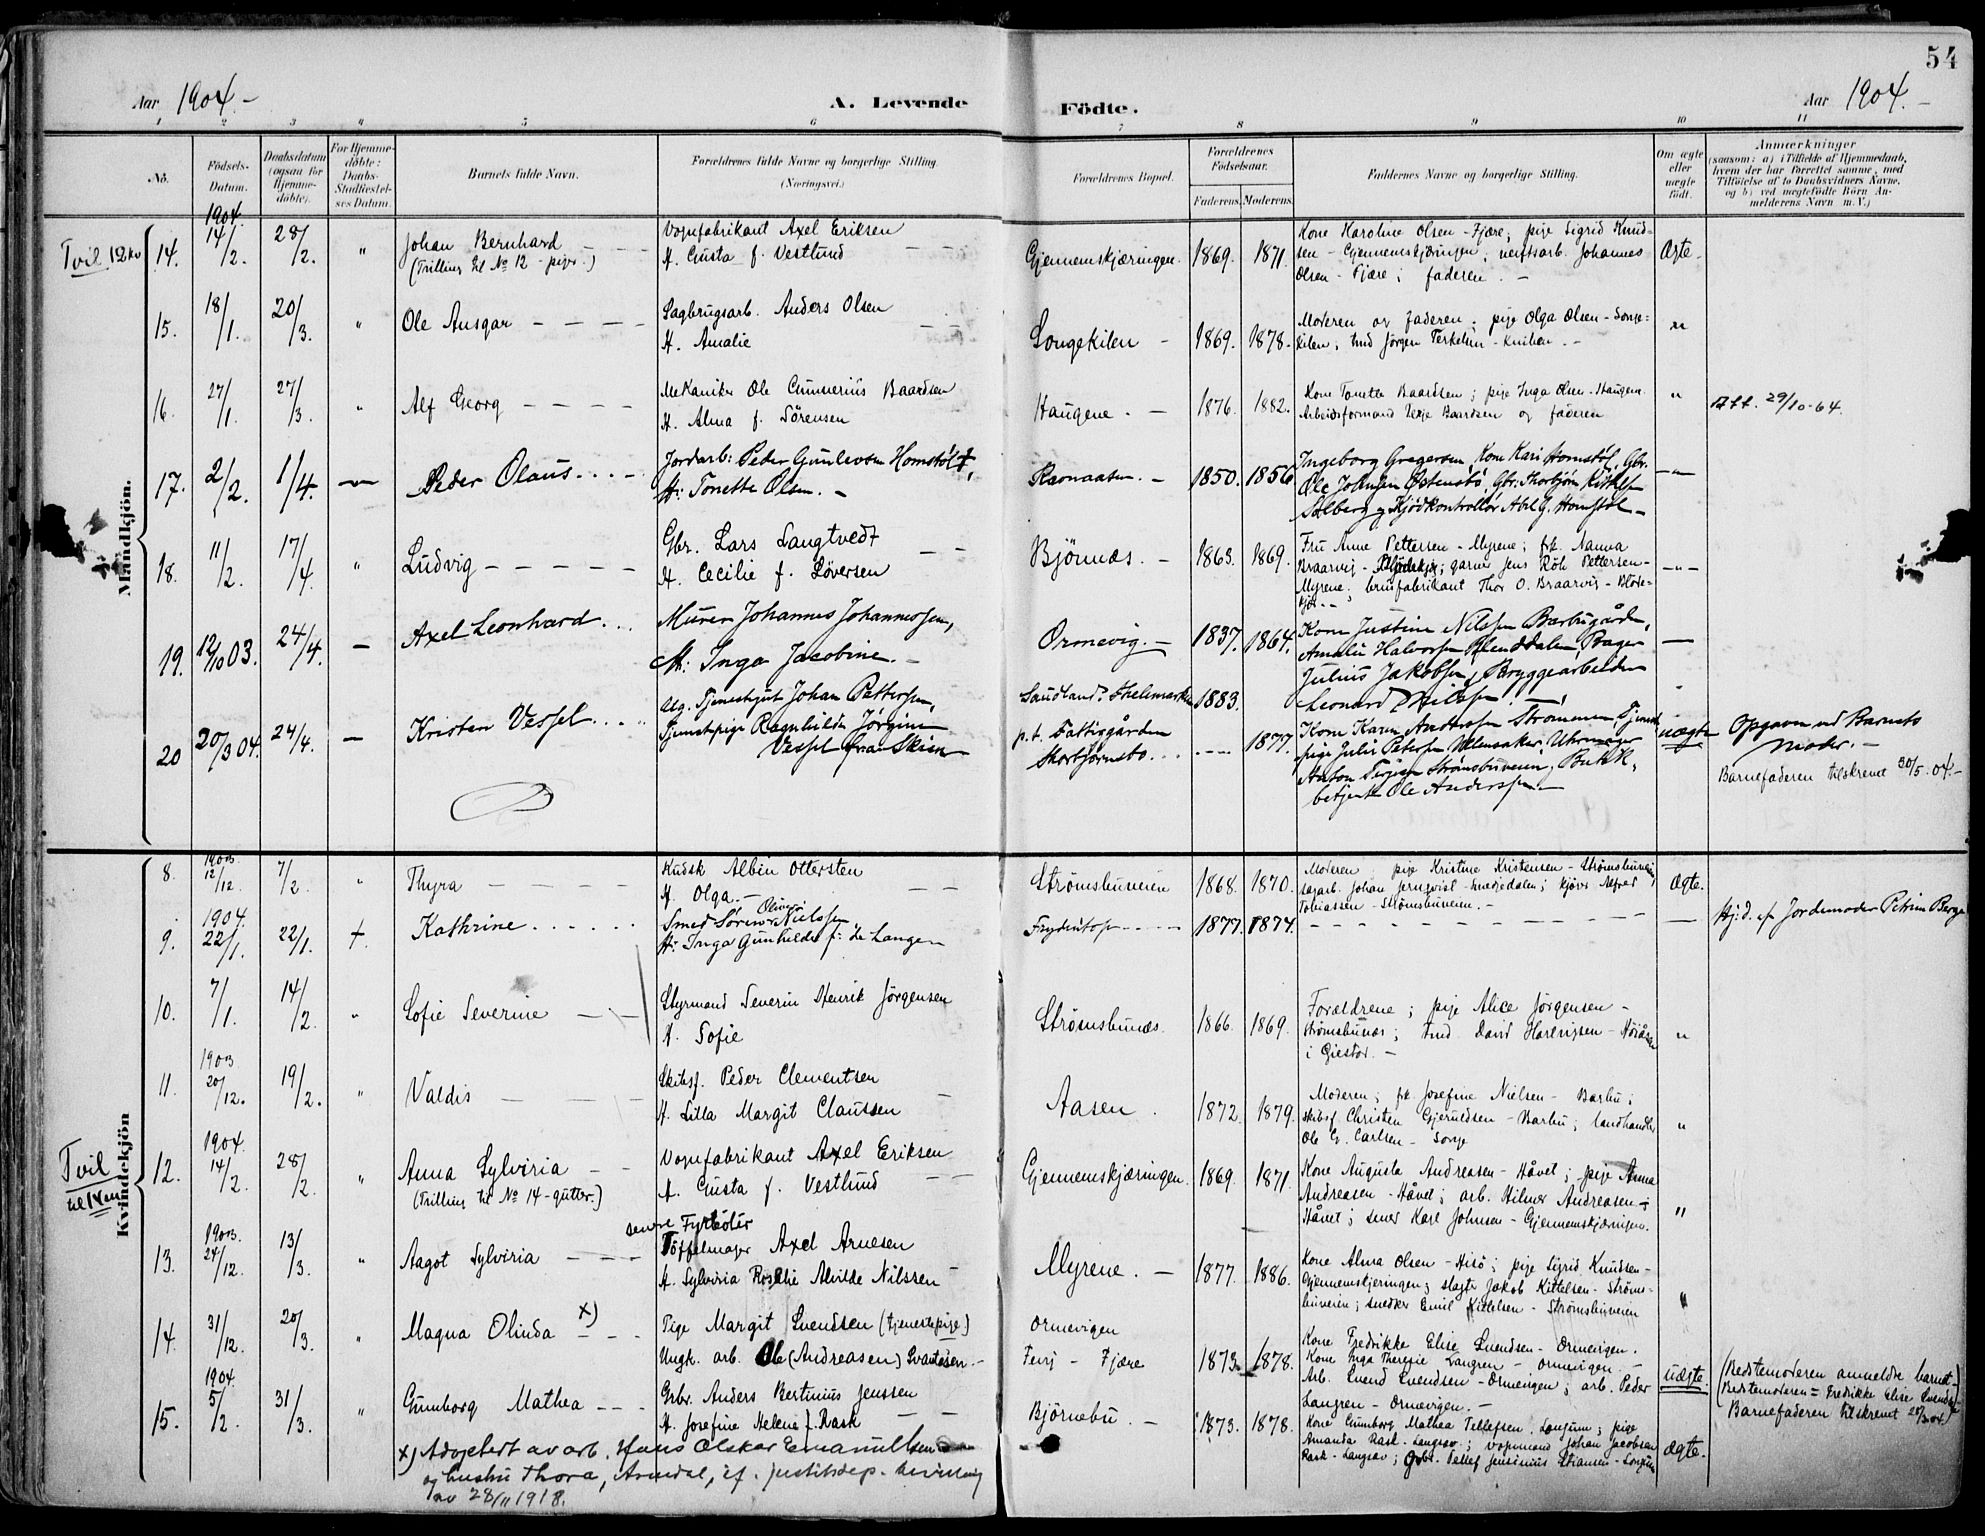 54
Aar 1904.-
A. Levende
Födte.
Aar 1904.-
1 2 3 4 5 6 7 8 9 10 11
No.
Födsels-Datum.
Daabsdatum (ogsaa for Hjemme-döbte).
For Hjemme-döbte: Daabs-Stadfæstel-ses Datum.
Barnets fulde Navn.
Forældrenes fulde Navne og borgerlige Stilling. (Næringsvei.)
Forældrenes Bopæl.
Forældrenes Födselsaar.
Faderens. Moderens.
Faddernes Navne og borgerlige Stilling.
Om ægte eller uægte födt.
Anmærkninger
(saasom: a) i Tilfælde af Hjemmedaab,
hvem der har forrettet samme, med
Tilföielse af to Daabsvidners Navne,
og b) ved uægtefödte Börn An-
melderens Navn m. V.)
Mandkjön.
1904.
Tvil 12 kv
14. 14/2. 28/2. "
Johan Bernhard
(Trilling til No 12 - piger.)
Vognfabrikant Axel Eriksen
H. Gusta f. Vestlund
Gjennemskjæringen. 1869. 1871.
Kone Karoline Olsen - Fjære; pige Sigrid Knud-
sen - Gjennemskjæringen; verftsarb. Johannes
Olsen - Fjære; faderen. -
Ægte.
15. 18/1. 20/3. "
Ole Ansgar - - - -
Sagbrugsarb. Anders Olsen
H. Amalie
Songekilen - 1869. 1878.
Moderen og faderen; pige Olga Olsen - Songe-
kilen; Jørgen Terkelsen -
"
16. 27/1. 27/3. "
Alf Georg - - - -
Mekaniker Ole Gunnerius Baardsen
H. Alma f. Sörensen
Haugene. - 1876. 1882.
Kone Tonette Baardsen; pige Inga Olsen - Haugene.
Arbeidsformand Terje Baardsen og faderen
"
Att. 29/10-64.
17. 2/2. 1/4. -
Peder Olaus. . . .
Jordarb: Peder Gunlevsen Homstöl †,
H: Tonette Olsen. -
Ravnaasen. - 1850. 1856.
Ingeborg Gregersen, Kone Kari Homstöl, Gbr.
Ole Johnsen Østensbö, Gbr: Thorbjörn Kittelsen
Solberg og Kjödkontrollör Abel G. Homstöl -
- " -
18. 11/2. 17/4. "
Ludvig - - - - -
Gbr. Lars Langtvedt
H. Cecilie f. Löversen
Björnæs. - 1863. 1869.
Fru Anne Pettersen - Myrene; frk. Nanna
Braarvig - garver Jens Pettersen -
Myrene; brusfabrikant Thor O. Braarvig - Blöde-
kjær. -
- " -
19. 12/10 03. 24/4. -
Axel Leonhard. . .
Murer Johannes Johannessen,
H: Inga Jacobine. -
Ormevig. - 1837. 1864.
Kone Justine Nilssen Barbugård,
Amalie Halvorsen Blenddalen, Bager
Julius Jakobsen, Bryggearbeider
Leonard Nilssen. -
-
20 20/3 04. 24/4. -
Kristen Vessel. . .
Ug. Tjenestegut Johan Pettersen,
Tjenestepige Ragnhilda Jörgine
Vessel fra Skien -
Sandland? Thelemarken 1883.
p.t. Fattiggården
Stortjörnsbo. . . - - - 1877.
Kone Karen Andersen Strømmen, Tjeneste
pige Julie Petersen, Uhrmager
Anton Strömsbuveien, Butik.
betjent Ole Anderssen. -
uægte
Opgave ved Barnets
Moder. -
Barnefaderen tilskrevet 30/5. 04. -
Kvindekjön
1903
8. 12/12. 7/2. "
Thyra - - - -
Kudsk Albin Ottersten
H. Olga. -
Strömsbuveien 1868. 1870.
Moderen; pige Kristine Kristensen - Strömsbuveien;
sagarb. Johan Jernqvist - Smedjedalen; Alfred
Tobiassen - Strömsbuveien. -
Ægte.
1904.
9. 22/1. 22/1. +.
Kathrine. . . . . .
Smed Sören Oliver Nielsen
H: Inga Gunhilda f: de Lange -
Frydentop - - - - 1877. 1874.
- - - - - - -
-
Hj.d. af Jordemoder Petrine Berge
10. 7/1. 14/2. "
Sofie Severine - -
Styrmand Severin Henrik Jörgensen
H. Sofie
Strömsbunæs. 1866. 1869.
Forældrene; pige Alice Jörgensen -
Strömsbunæs; tmd. David -
i Giestad. -
"
1903
11. 20/12. 19/2. "
Valdis - - -
Skibsf. Peder Clementsen
H. Lilla Margit Claussen
Aasen. 1872 1879.
Moderen; frk. Josefine Nielsen - Barbu;
skibsf. Christen Gjeruldsen - Barbu; landhandler
Ole G. Carlsen - Songe
"
1904.
Tvil
til 14 m
12. 14/2. 28/2. "
Anna Sylviria - -
(Trilling til No 14 - gutter.)
Vognfabrikant Axel Eriksen
H. Gusta f. Vestlund
Gjennemskjæringen. 1869. 1871.
Kone Augusta Andreasen - Håvet; pige Anna
Andreasen - Håvet; arb. Hilmer Andreasen -
Håvet; smed Karl Johnsen - Gjennemskjæringen.
"
1903.
13. 24/12. 13/3. "
Aagot Sylviria - - -
senere Fyrbøter
Töffelmager Axel Arnesen
H. Sylviria Rosalie Alvilde Nilssen
Myrene. - 1877. 1886.
Kone Alma Olsen - Hisö; pige Sigrid Knudsen -
Gjennemskjæringen; slagter Jakob Kittelsen - Ströms-
buveien; snedker Emil Kittelsen - Strömsbuveien
"
14. 31/12. 20/3. "
Magna Olinda x) - - -
Pige Margit Svendsen (tjenestepige)
Ungk. arb. Ole (Andreasen) Svantesen. -
Ormevigen
- Fjære 1873. 1878.
Kone Fredrikke Elise Svendsen - Ormevigen.
Kone Inga Therese Langren - Ormevigen. -
Arb. Svend Svendsen - Ormevigen; arb. Peder
Langren - Ormevigen. -
uægte.
(Bedstemoderen anmeldte barnet -)
(Bedstemoderen = Fredrikke Elise Svendsen)
Barnefaderen tilskrevet
1904.
15. 5/2. 31/3. "
Gunborg Mathea - - -
Grbr. Anders Bertinius Jenssen
H. Josefine Helene f. Rask
Björnebu. - 1873. 1878.
Kone Gunborg Mathea Tellefsen. Longum; pige
Amanda Rask - Langsæv; vognmand Johan Jacobsen
Rask - Langsæv; Grbr. Tellef Jensinius Stiansen - Longum
Ægte.
x) Adoptert av arb. Hans Oskar Emanuelsen
og hustru Thora, Arendal, if. justitsdep. bevilling
av 28/11 1918.